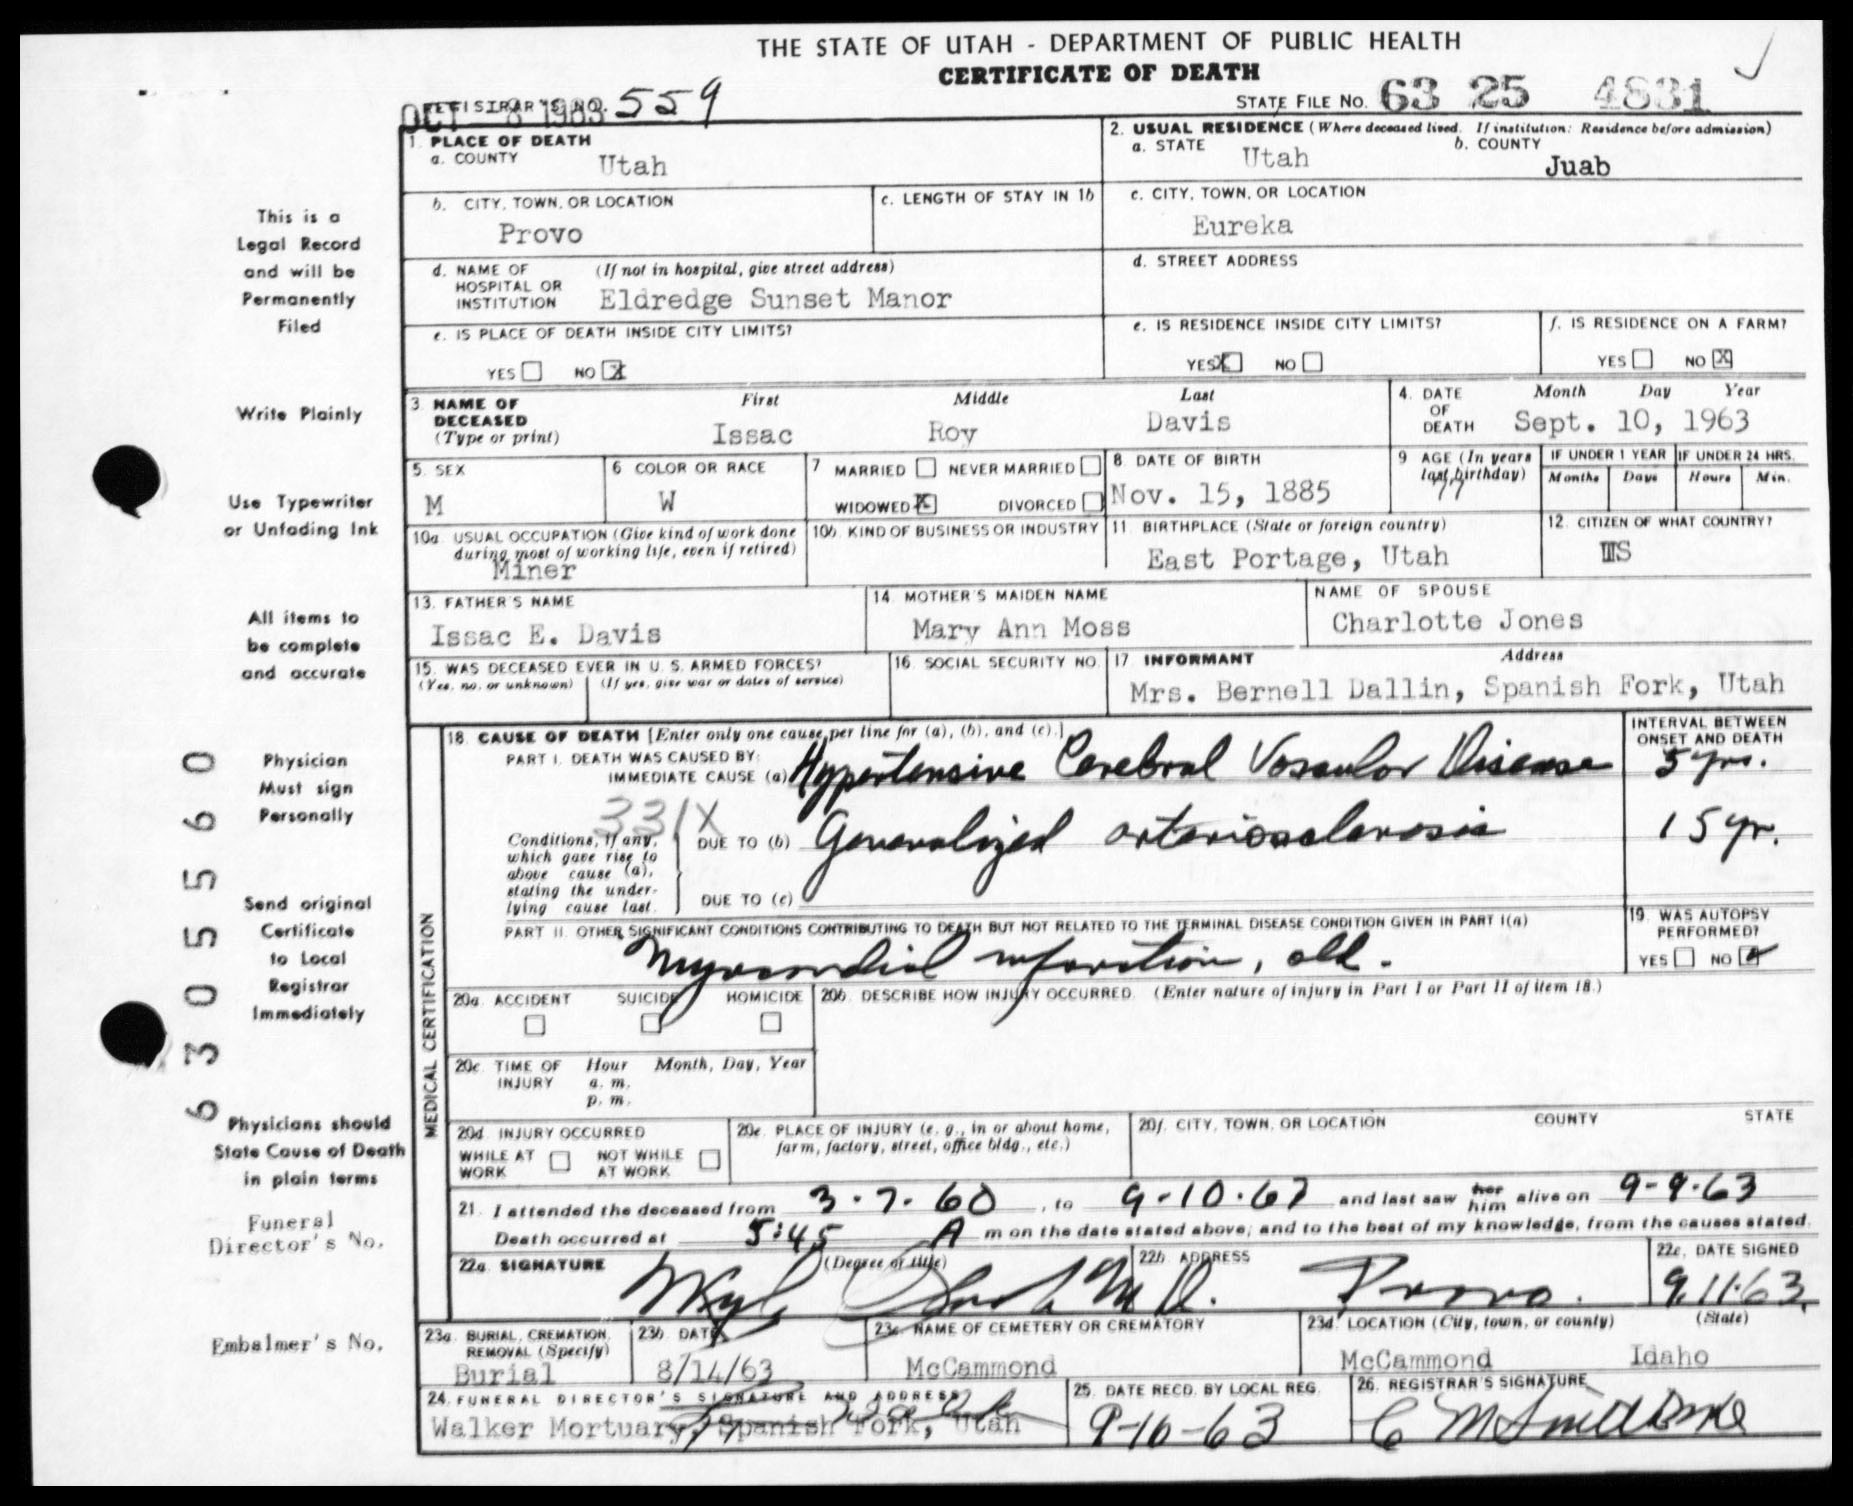 THE STATE OF UTAH - DEPARTMENT OF PUBLIC HEALTH
CERTIFICATE OF DEATH
REGISTRAR'S NO. 559
OCT 8 1963
STATE FILE NO. 63 25 4831
1. PLACE OF DEATH
a. COUNTY Utah
2. USUAL RESIDENCE (Where deceased lived. If institution: Residence before admission)
a. STATE Utah b. COUNTY Juab
b. CITY, TOWN, OR LOCATION Provo
c. LENGTH OF STAY IN 1b
c. CITY, TOWN, OR LOCATION Eureka
d. NAME OF HOSPITAL OR INSTITUTION (If not in hospital, give street address) Eldredge Sunset Manor
d. STREET ADDRESS
e. IS PLACE OF DEATH INSIDE CITY LIMITS?
YES NO X
e. IS RESIDENCE INSIDE CITY LIMITS?
YES X NO
f. IS RESIDENCE ON A FARM?
YES NO X
3. NAME OF DECEASED (Type or print)
First Middle Last
Issac Roy Davis
4. DATE OF DEATH Month Day Year
Sept. 10, 1963
5. SEX M
6 COLOR OR RACE W
7 MARRIED NEVER MARRIED
WIDOWED X DIVORCED
8. DATE OF BIRTH
Nov. 15, 1885
9 AGE (In years last birthday) 77
IF UNDER 1 YEAR Months Days
IF UNDER 24 HRS. Hours Min.
10a. USUAL OCCUPATION (Give kind of work done during most of working life, even if retired)
Miner
10b. KIND OF BUSINESS OR INDUSTRY
11. BIRTHPLACE (State or foreign country)
East Portage, Utah
12. CITIZEN OF WHAT COUNTRY?
US
13. FATHER'S NAME
Issac E. Davis
14. MOTHER'S MAIDEN NAME
Mary Ann Moss
NAME OF SPOUSE
Charlotte Jones
15. WAS DECEASED EVER IN U. S. ARMED FORCES?
(Yes, no, or unknown) (If yes, give war or dates of service)
16. SOCIAL SECURITY NO.
17. INFORMANT Address
Mrs. Bernell Dallin, Spanish Fork, Utah
MEDICAL CERTIFICATION
18. CAUSE OF DEATH [Enter only one cause per line for (a), (b), and (c).]
INTERVAL BETWEEN ONSET AND DEATH
PART I. DEATH WAS CAUSED BY:
IMMEDIATE CAUSE (a) Hypertensive Cerebral Vascular Disease 5 yrs.
331X
Conditions, if any, which gave rise to above cause (a), stating the underlying cause last.
DUE TO (b) Generalized arteriosclerosis 15 yr.
DUE TO (c)
PART II. OTHER SIGNIFICANT CONDITIONS CONTRIBUTING TO DEATH BUT NOT RELATED TO THE TERMINAL DISEASE CONDITION GIVEN IN PART I(a)
Myocardial infarction, old.
19. WAS AUTOPSY PERFORMED?
YES NO
20a. ACCIDENT SUICIDE HOMICIDE
20b. DESCRIBE HOW INJURY OCCURRED. (Enter nature of injury in Part I or Part II of item 18.)
20c. TIME OF INJURY Hour Month, Day, Year
a. m.
p. m.
20d. INJURY OCCURRED
WHILE AT WORK NOT WHILE AT WORK
20e. PLACE OF INJURY (e. g., in or about home, farm, factory, street, office bldg., etc.)
20f. CITY, TOWN, OR LOCATION COUNTY STATE
21. I attended the deceased from 3-7-60, to 9-10-63 and last saw her him alive on 9-9-63
Death occurred at 5:45 A m on the date stated above; and to the best of my knowledge, from the causes stated.
22a. SIGNATURE (Degree or title) M.D.
22b. ADDRESS Provo.
22c. DATE SIGNED 9-11-63
23a. BURIAL, CREMATION, REMOVAL (Specify)
Burial
23b. DATE
8/14/63
23c. NAME OF CEMETERY OR CREMATORY
McCammond
23d. LOCATION (City, town, or county) (State)
McCammond Idaho
24. FUNERAL DIRECTOR'S SIGNATURE AND ADDRESS
Walker Mortuary, Spanish Fork, Utah
25. DATE RECD. BY LOCAL REG.
9-16-63
26. REGISTRAR'S SIGNATURE
This is a
Legal Record
and will be
Permanently
Filed
Write Plainly
Use Typewriter
or Unfading Ink
All items to
be complete
and accurate
Physician
Must sign
Personally
Send original
Certificate
to Local
Registrar
Immediately
Physicians should
State Cause of Death
in plain terms
Funeral
Director's No.
Embalmer's No.
6305560